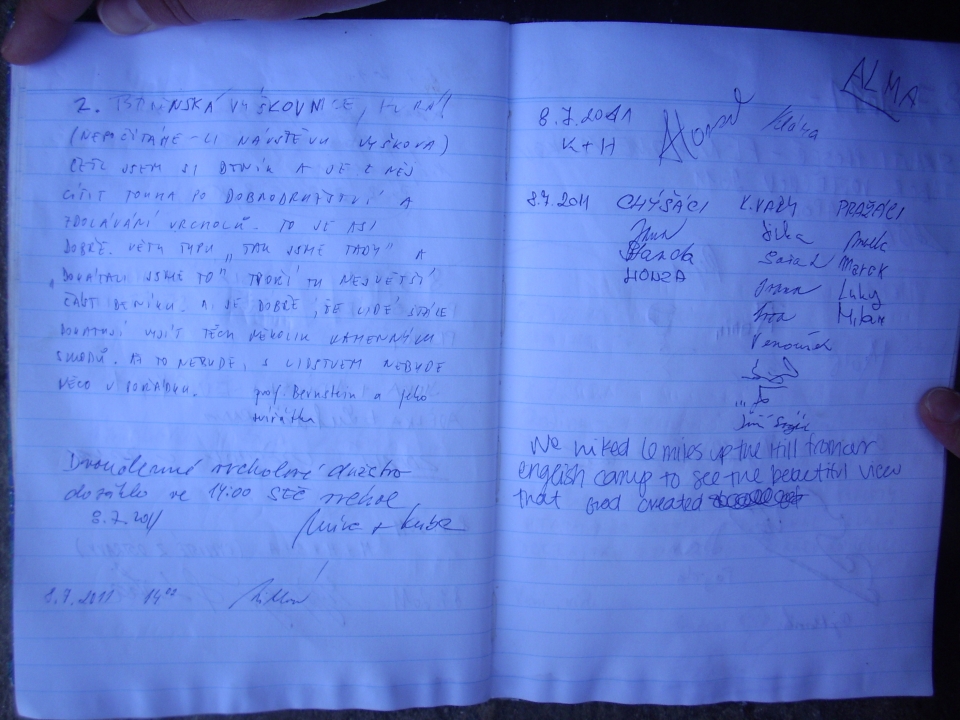 2. VÝŠKOVNICE, HURÁ!
(NEPOČÍTÁME-LI NÁVŠTĚVU VYŠKOVA)
ČETL JSEM SI DENÍK A JE Z NĚJ
CÍTIT TOUHA PO DOBRODRUŽSTVÍ A
ZDOLÁVÁNÍ VRCHOLŮ. TO JE ASI
DOBŘE. VĚTY TYPU „TAK JSME TADY" A
„DOKÁZALI JSME TO" TVOŘÍ TU NEJVĚTŠÍ
ČÁST DENÍKU. A JE DOBŘE, ŽE LIDÉ STÁLE
DOKAZUJÍ VYJÍT TĚCH NĚKOLIK KAMENNÝCH
SCHODŮ. AŽ TO NEBUDE, S LIDSTVEM NEBUDE
NĚCO V POŘÁDKU. prof. Bernstein a jeho
zvířátka
Dvoučlenné vrcholové družstvo
dosáhlo ve 14:00 SEČ vrchol
8.7.2011
8.7.2011 14⁰⁰
ALMA
8.7.2011
K+H
Klára
8.7.2011 CHÝŠÁCI K.VARY PRAŽÁCI
Jana
Blanda
HONZA
Marek
Luky
Milan
Venoušek
Jiří
We hiked 6 miles up the Hill from our
english camp to see the beautiful view
that God created